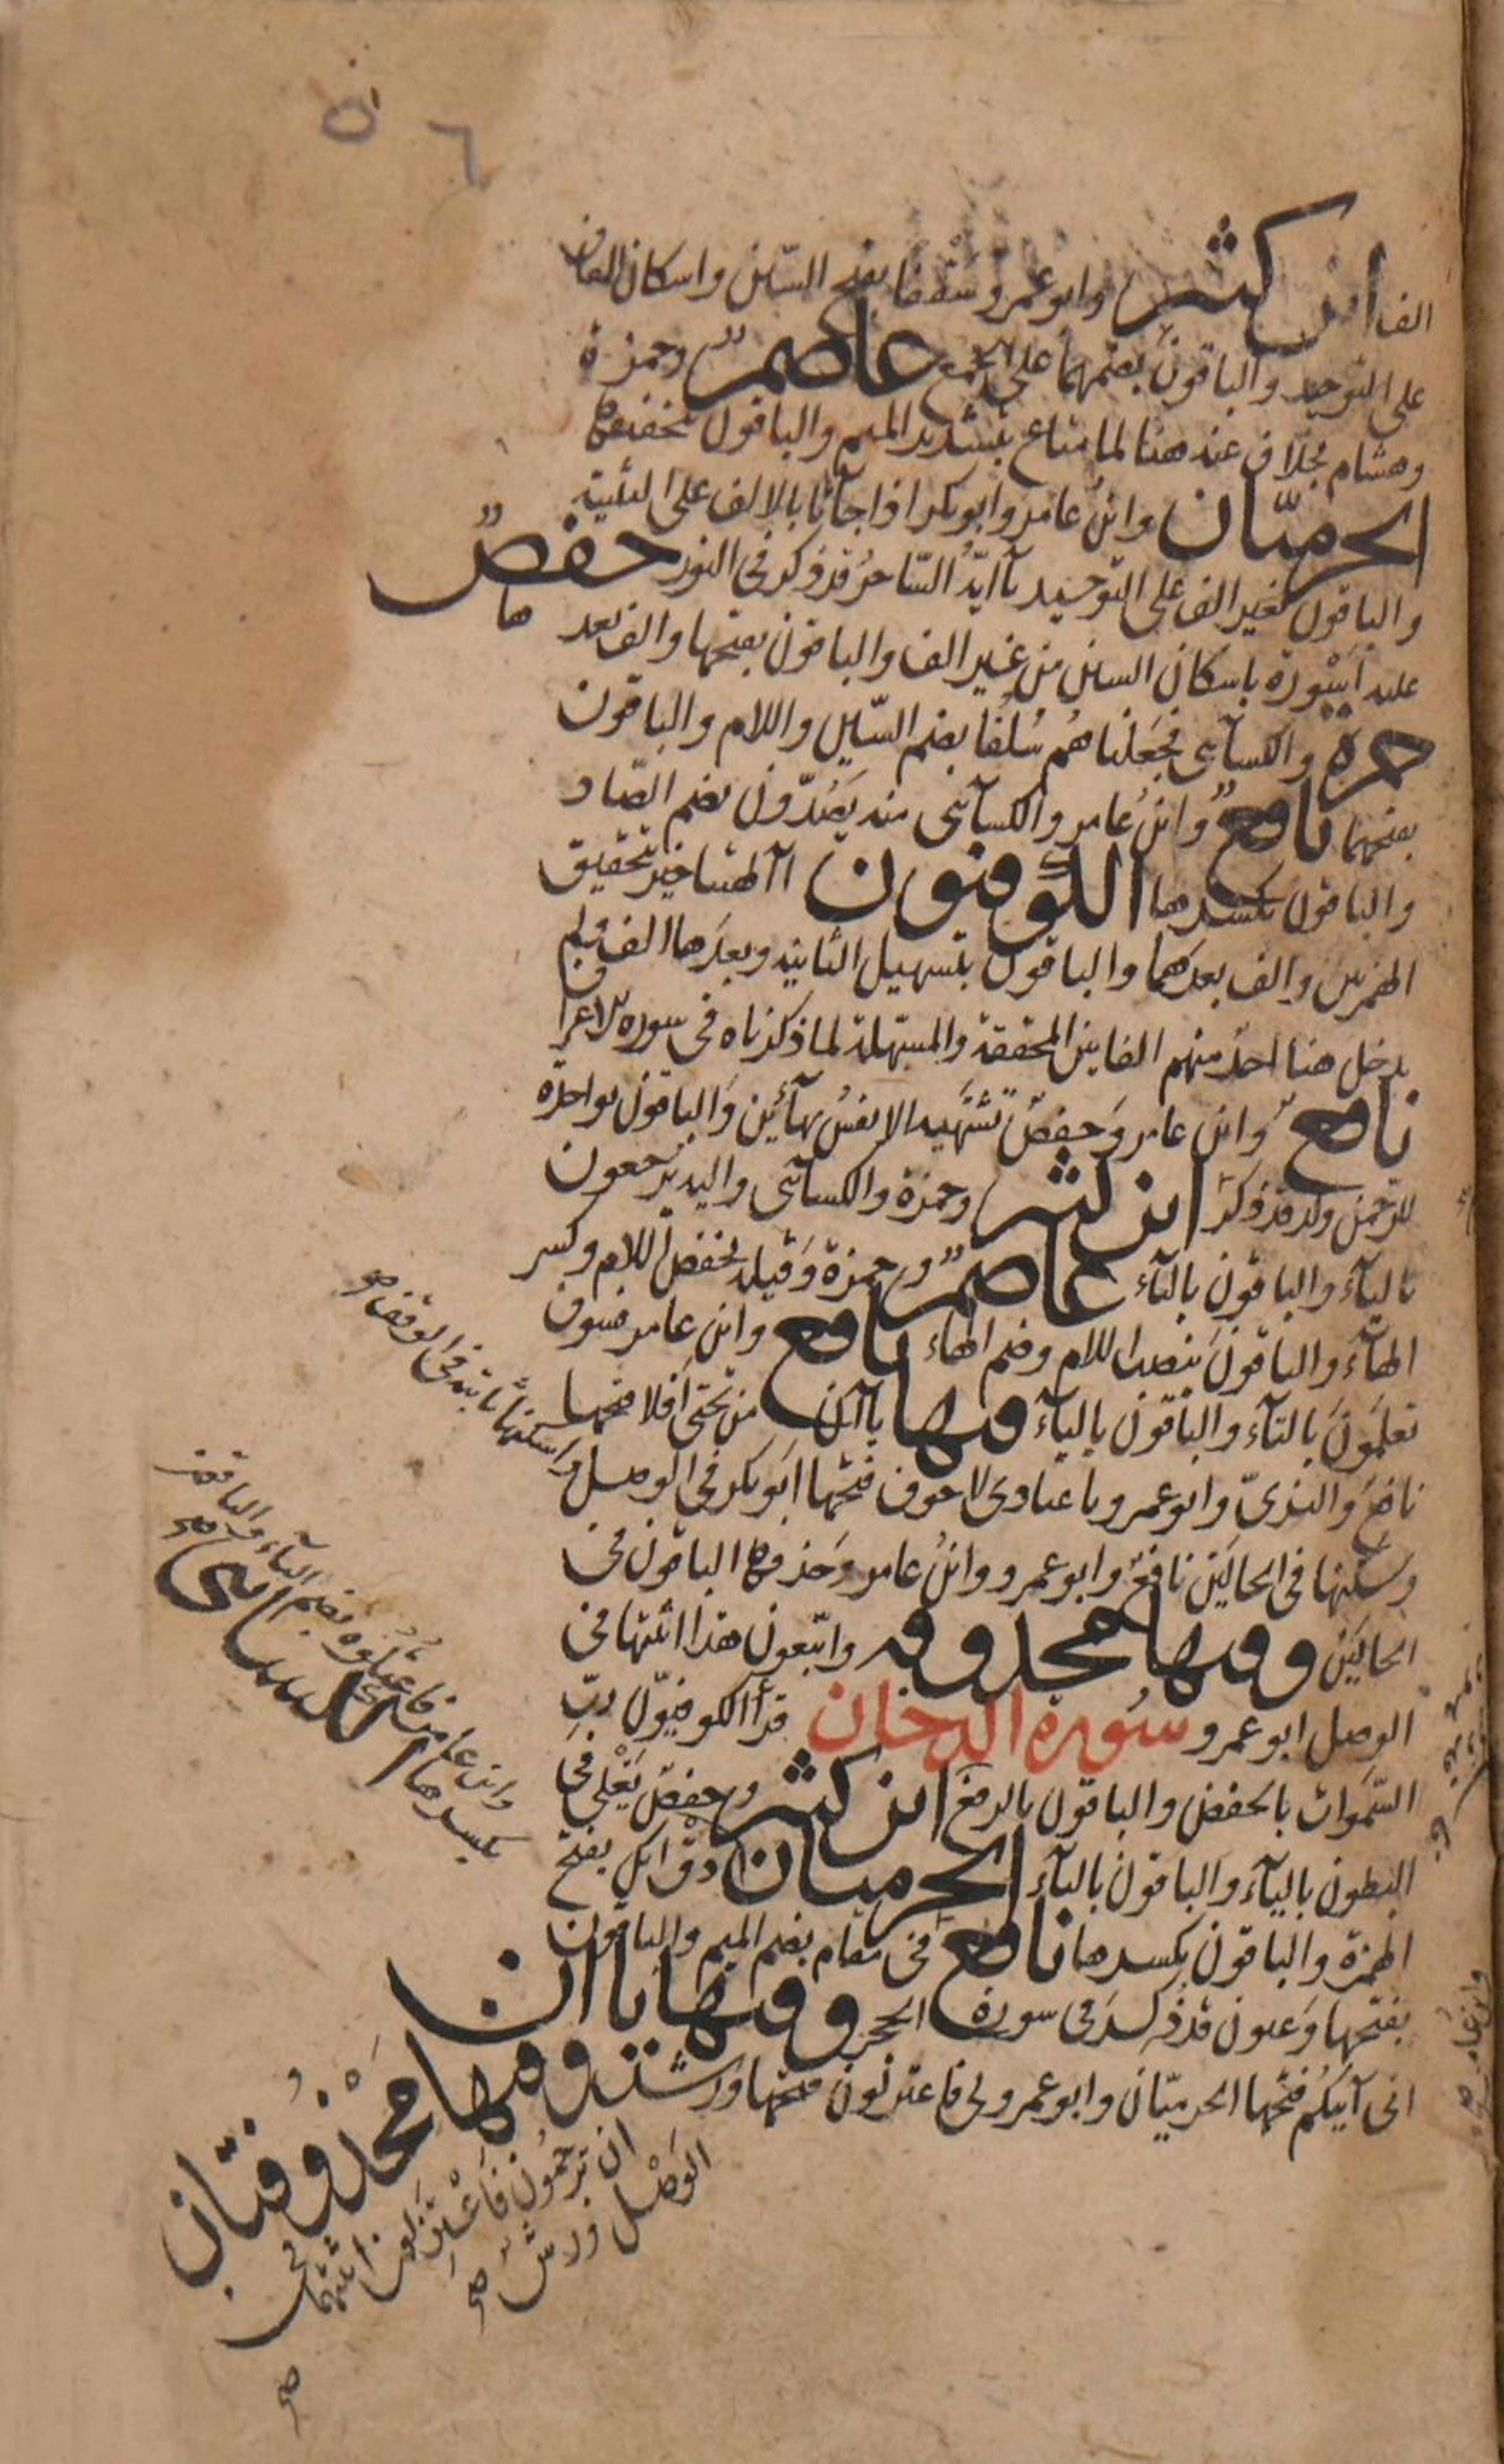 ٥٦
الف ابن كثير وابو عمرو سقفا بفتح السّين واسكان القاف
على التوحيد والباقون بضمهما على الجمع عاصمٌ وحمزة
وهشام بخلاف عنه هنا لما متاع بتشديد الميم والباقون بتخفيفها
الحرميّان وابن عامر وابو بكر اذا جاآنا بالالف على التثنية
والباقون بغير الف على التوحيد يآ ايّهُ السّاحرُ قد ذكر في النور حفصٌ
عليه اَسْوِرة باسكان السين من غير الف والباقون بفتحها والف بعدها
حمزة والكسآئى فجَعَلناهُم سُلُفًا بضم السّين واللام والباقون
بفتحهما نافعٌ وابن عامر والكسآئى منه يَصُدّون بضم الصّاد
والباقون بكسرها الكوفيّون اآلهتنا خير بتحقيق
الهمزتين والف بعدهما والباقون بتسهيل الثانية وبعدها الف ولم
يدخل هنا احدٌ منهم الفا بين المحققة والمسهّلة لما ذكرناه في سورة الاعراف
نافعٌ وابن عامر وَحفصٌ تشتَهيه الانفسُ بهآئين وَالباقون بواحدة
للرحمن ولد قد ذكر ابن كثير وحمزة والكسآئى واليه يُرجعون
باليآء والباقون بالتآء عاصمٌ وحمزة وَقيلِه بخفض اللام وكسر
الهآء والباقونَ بنصب اللام وضم الهاء نافع وابن عامر فسوف
تعلَمونَ بالتآء والباقون باليآء وفيها ياآن من تحتى اَفلا فتحها
نافعٌ والبزىّ وابو عمرو يا عبادى لا خوف فتحها ابو بكر في الوصل واسكنها ثابتة في الوقف صح
وسكنها في الحالَين نافعٌ وابو عمرو وابنُ عامر وَحذفها الباقون في
الحالَين وفيها محذوفة واتّبعون هذا اثبتها في
الوصل ابو عمرو سُورة الدخان قرأ الكوفيّون ربِّ
السّموات بالخفض والباقون بالرفع ابن كثير وحفصٌ يَغْلى في
البطون باليآء والباقون بالتآء الحرميان
الهمزة والباقون بكسرها نافع في مقام بضم الميم والباقون
بفتحها وَعيون قد ذكر في سورة الحجر وفيها ياآن
انى آتيكُم فتحها الحرميّان وابو عمرو لى فاعتزلون فتحها ورش وفيها مَحْذُوفتان
ان ترجُمُونِ فَاعْتَزِلُون اثبتهما في
الوَصْل وَرشٌ صح
وابن عامر فاعتُلُوه بضم التآء والباقون
بكسرها الكسائى صح